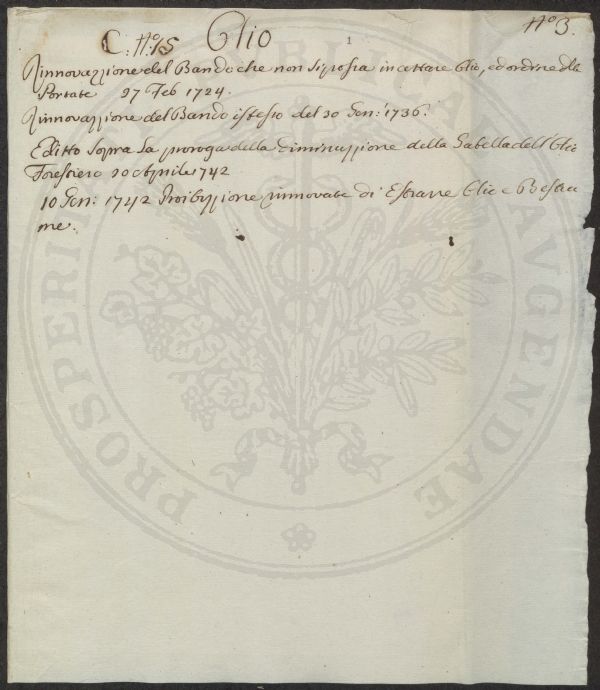 C: N:º 15 Olio 1 Nº 3.
Rinnovazzione del Bando che non si possa incettare Olio, ed ordine delle
Portate 27 Feb 1724.
Rinnovazzione del Bando istesso del 30 Gen: 1736.
Editto sopra la proroga della Diminuzzione della Gabella dell'Olio
Forestiero 20 Aprile 1742
10 Gen: 1742 Proibizzione rinnovata di Estrarre Olio e Bestia
me.
PROSPERITATI PUBLICAE AUGENDAE